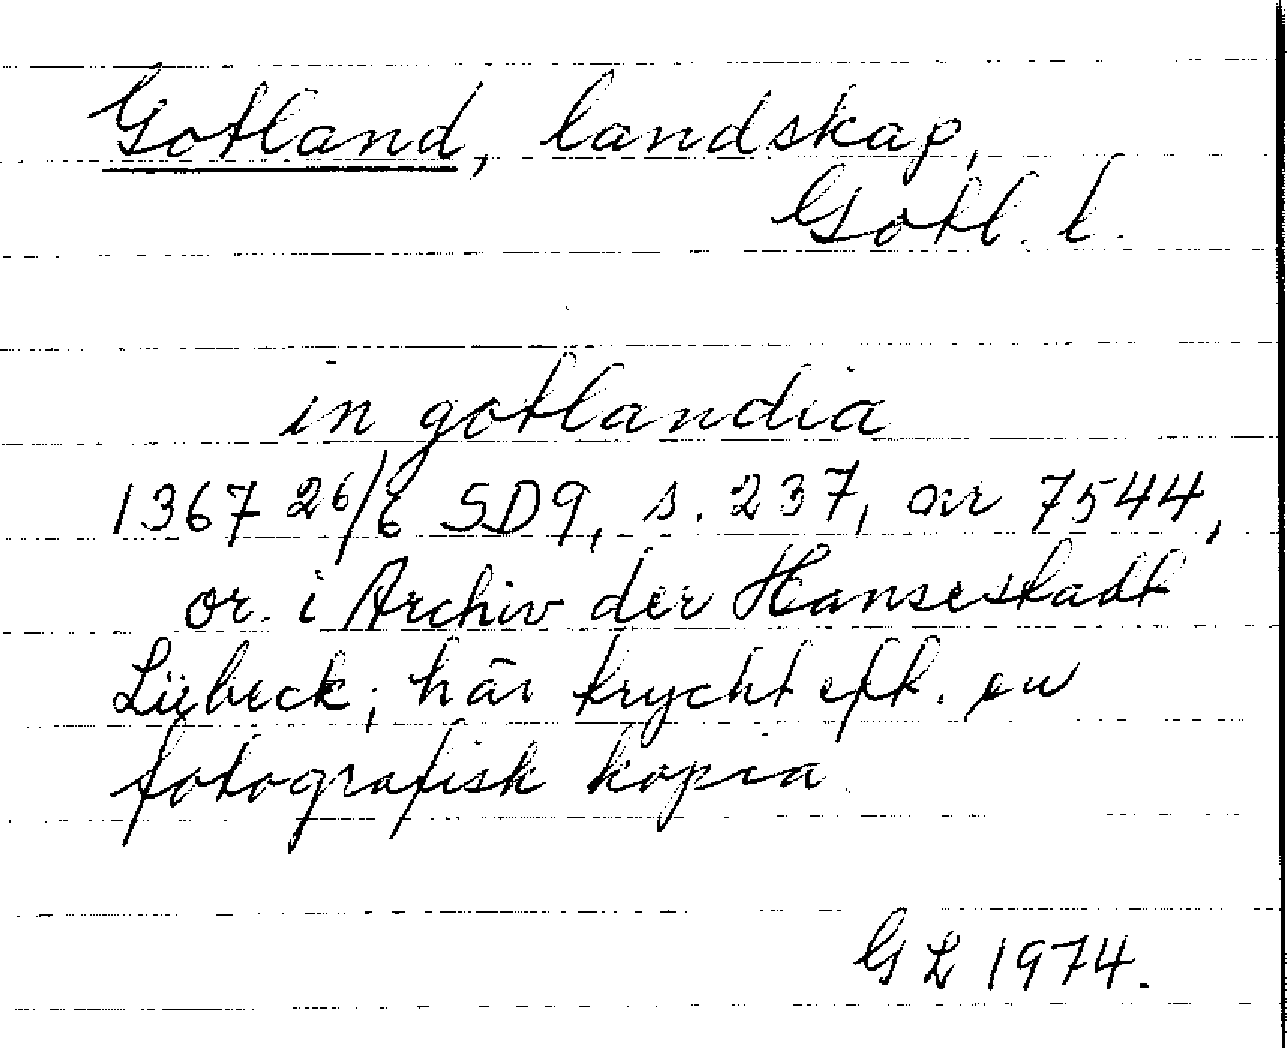 Gotland, landskap,
Gotl. l.
in gotlandia
1367 26/6 SD9, s. 237, nr 7544,
or. i Archiv der Hansestadt
Lübeck; här tryckt eft. en
fotografisk kopia.
GL 1974.